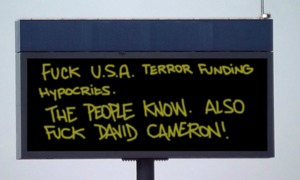 FUCK U.S.A. TERROR FUNDING
HYPOCRIES.
THE PEOPLE KNOW. ALSO
FUCK DAVID CAMERON!